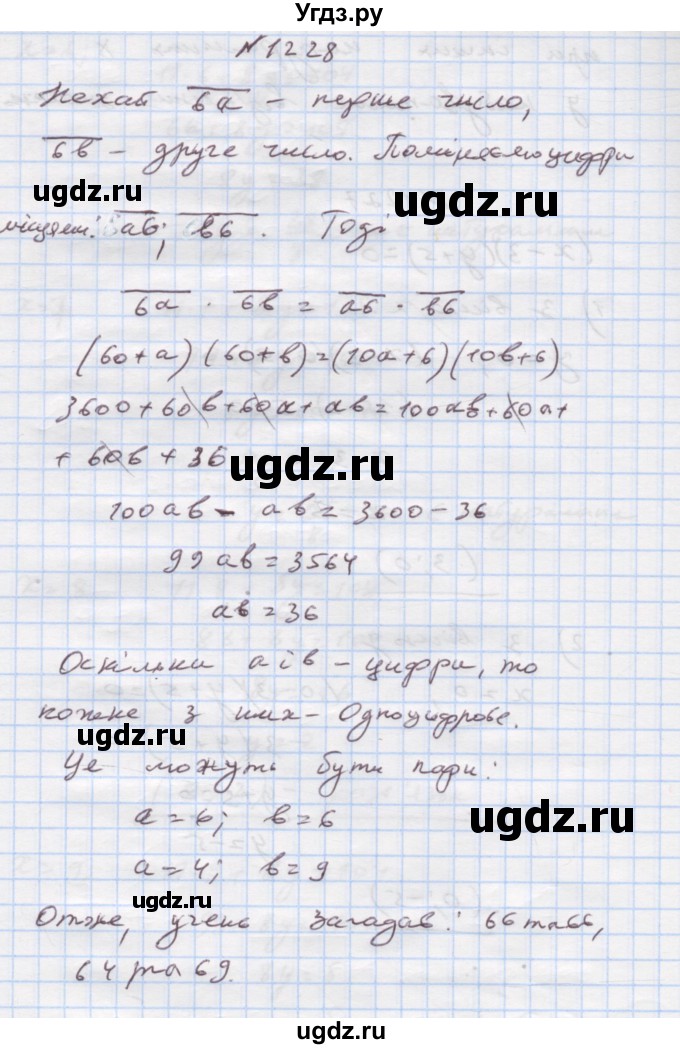 Угдз.ру
№1228
Нехай 6a – перше число,
6в – друге число. Поміняємо цифри
місцями: a6; в6. Тоді
6a · 6в = a6 · в6
(60+a)(60+в)=(10a+6)(10в+6)
3600+60в+60a+aв=100aв+60a+
+60в+36
100aв – aв=3600–36
99aв=3564
aв=36
Оскільки a і в – цифри, то
кожне з них – одноцифрове.
Це можуть бути пари:
a=6; в=6
a=4; в=9
Отже, учень загадав: 66 та 66,
64 та 69.
ugdz.ru
ugdz.ru
ugdz.ru
ugdz.ru
ugdz.ru
ugdz.ru
ugdz.ru
ugdz.ru